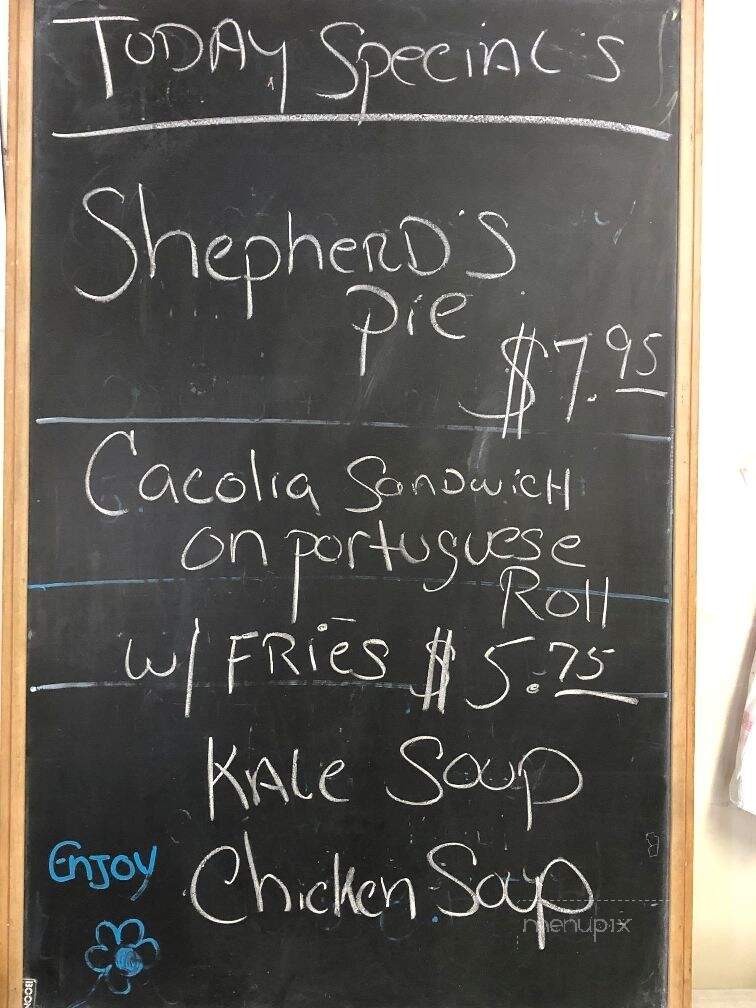 TODAY SPECIAL'S
SHEPHERD'S
PIE
$7.95
CACOLIA SANDWICH
ON PORTUGUESE
ROLL
W/ FRIES $5.75
KALE SOUP
ENJOY
CHICKEN SOUP
menupix
BOON